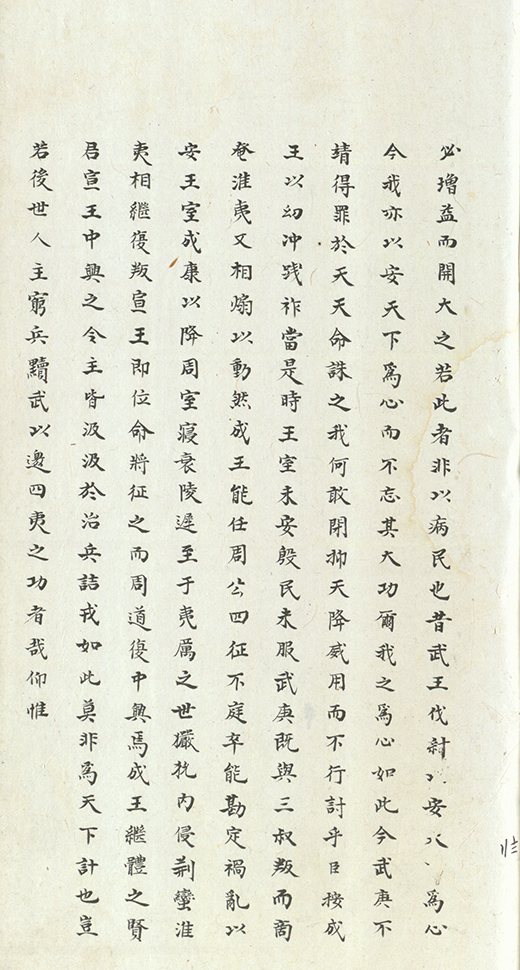 必增益而開大之若此者非以病民也昔武王伐紂以安天爲心
今我亦以安天下爲心而不忘其大功爾我之爲心如此今武庚不
靖得罪於天天命誅之我何敢閉抑天降威用而不行討乎臣按成
王以幼冲踐祚當是時王室未安殷民未服武庚既與三叔叛而商
奄淮夷又相煽以動然成王能任周公四征不庭卒能勘定禍亂以
安王室成康以降周室寖衰陵遲至于夷厲之世玁狁内侵荆蠻淮
夷相繼復叛宣王即位命將征之而周道復中興焉成王繼體之賢
君宣王中興之令主皆汲汲於治兵詰戎如此莫非爲天下計也豈
若後世人主窮兵黷武以邀四夷之功者哉仰惟